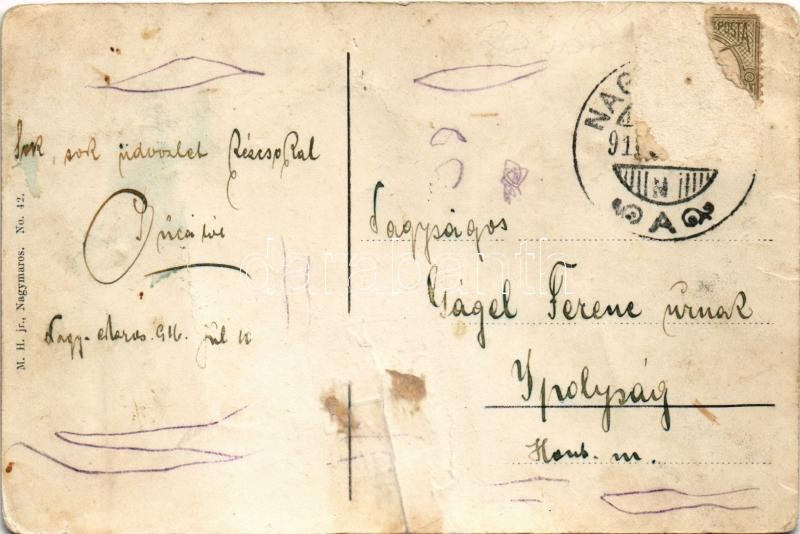 Sok, sok üdvözlet kézcsókal
Nagy-Maros. 911. júl 11
M. H. jr., Nagymaros. No. 42.
POSTA
NAG
911
N
darabanth
Nagyságos
Gágel Ferenc úrnak
Ipolyság
Hont. m.